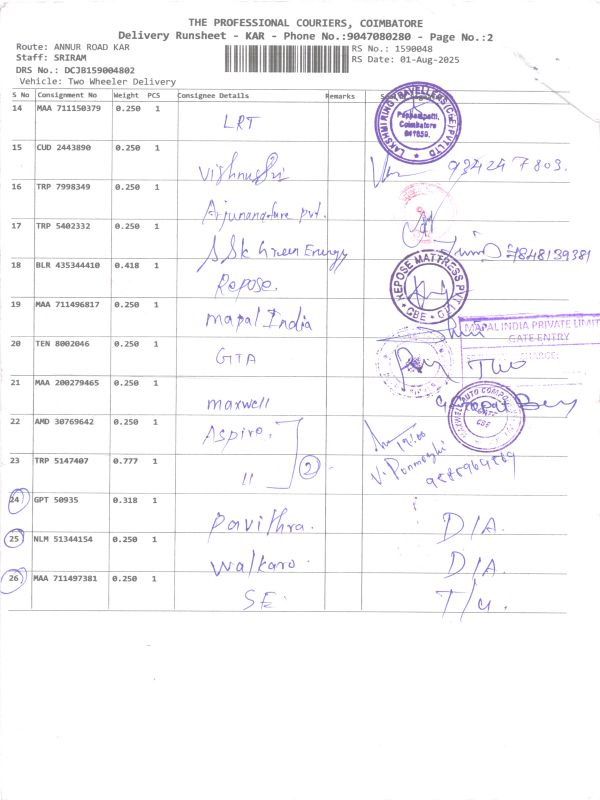 THE PROFESSIONAL COURIERS, COIMBATORE
Delivery Runsheet - KAR - Phone No.:9047080280 - Page No.:2
Route: ANNUR ROAD KAR
RS No.: 1590048
Staff: SRIRAM
RS Date: 01-Aug-2025
DRS No.: DCJB159004802
Vehicle: Two Wheeler Delivery
S No Consignment No Weight PCS Consignee Details Remarks
14 MAA 711150379 0.250 1 LRT
LAKSHMI RING TRAVELLERS (CBE) PVT LTD
Pappampatti, Coimbatore 641659.
15 CUD 2443890 0.250 1 Vishnushri 934247803.
16 TRP 7998349 0.250 1 Arjunandure pvt.
17 TRP 5402332 0.250 1 SSk Green Energy
18 BLR 435344410 0.418 1 Repose.
REPOSE MATTRESS PVT
CBE
19 MAA 711496817 0.250 1 mapal India
MAPAL INDIA PRIVATE LIMIT
GATE ENTRY
20 TEN 8002046 0.250 1 GTA
21 MAA 200279465 0.250 1 maxwell
MAXWELL AUTO COMPO
CBE
22 AMD 30769642 0.250 1 Aspiro.
23 TRP 5147407 0.777 1 11 2
V. Ponmozhi
24 GPT 50935 0.318 1 Pavithra. D/A.
25 NLM 51344154 0.250 1 Walkaro. D/A.
26 MAA 711497381 0.250 1 SE. T/u.